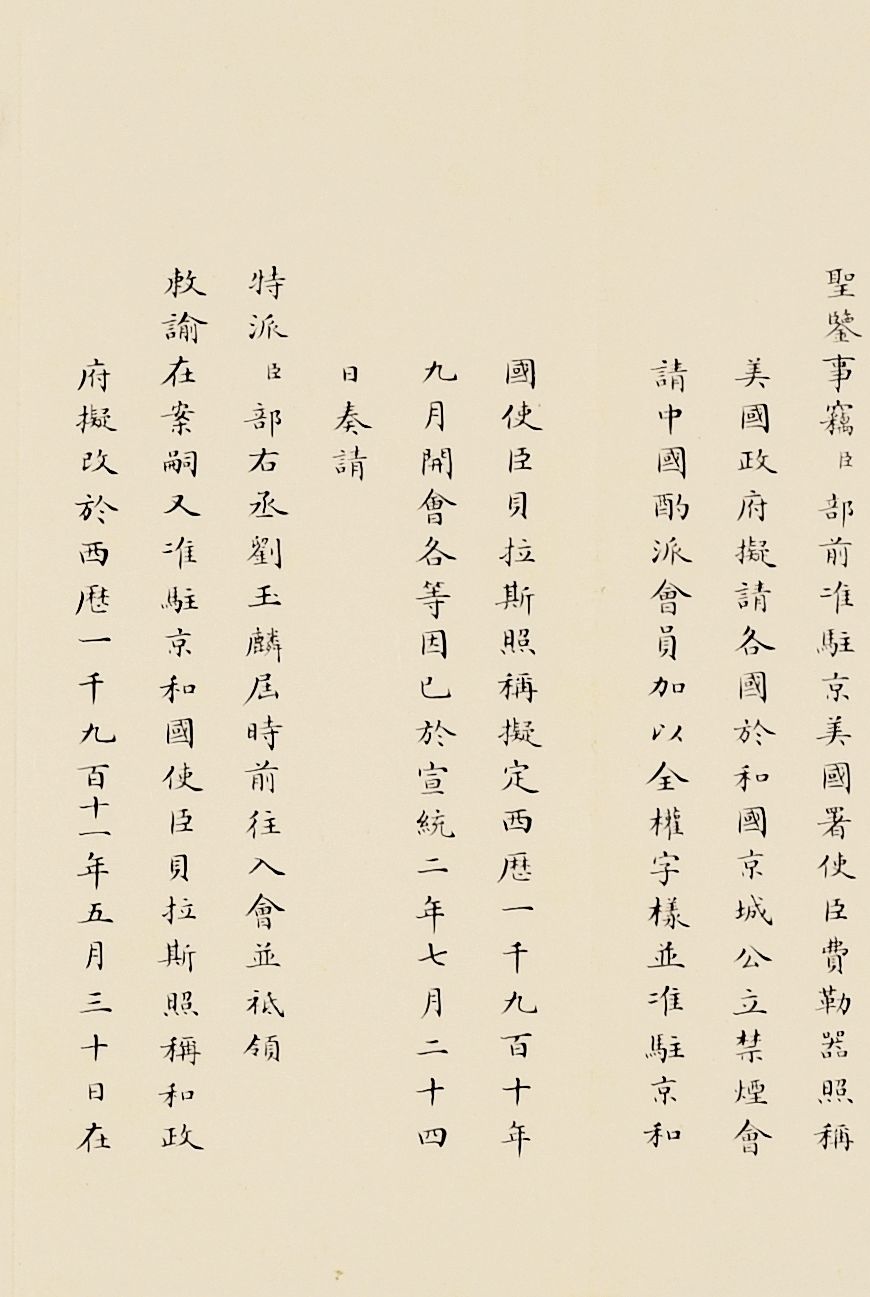 聖鑒事竊臣部前准駐京美國署使臣費勒器照稱
美國政府擬請各國於和國京城公立禁煙會
請中國酌派會員加以全權字樣並准駐京和
國使臣貝拉斯照稱擬定西歷一千九百十年
九月開會各等因已於宣統二年七月二十四
日奏請
特派臣部右丞劉玉麟屆時前往入會並祗領
敕諭在案嗣又准駐京和國使臣貝拉斯照稱和政
府擬改於西歷一千九百十一年五月三十日在